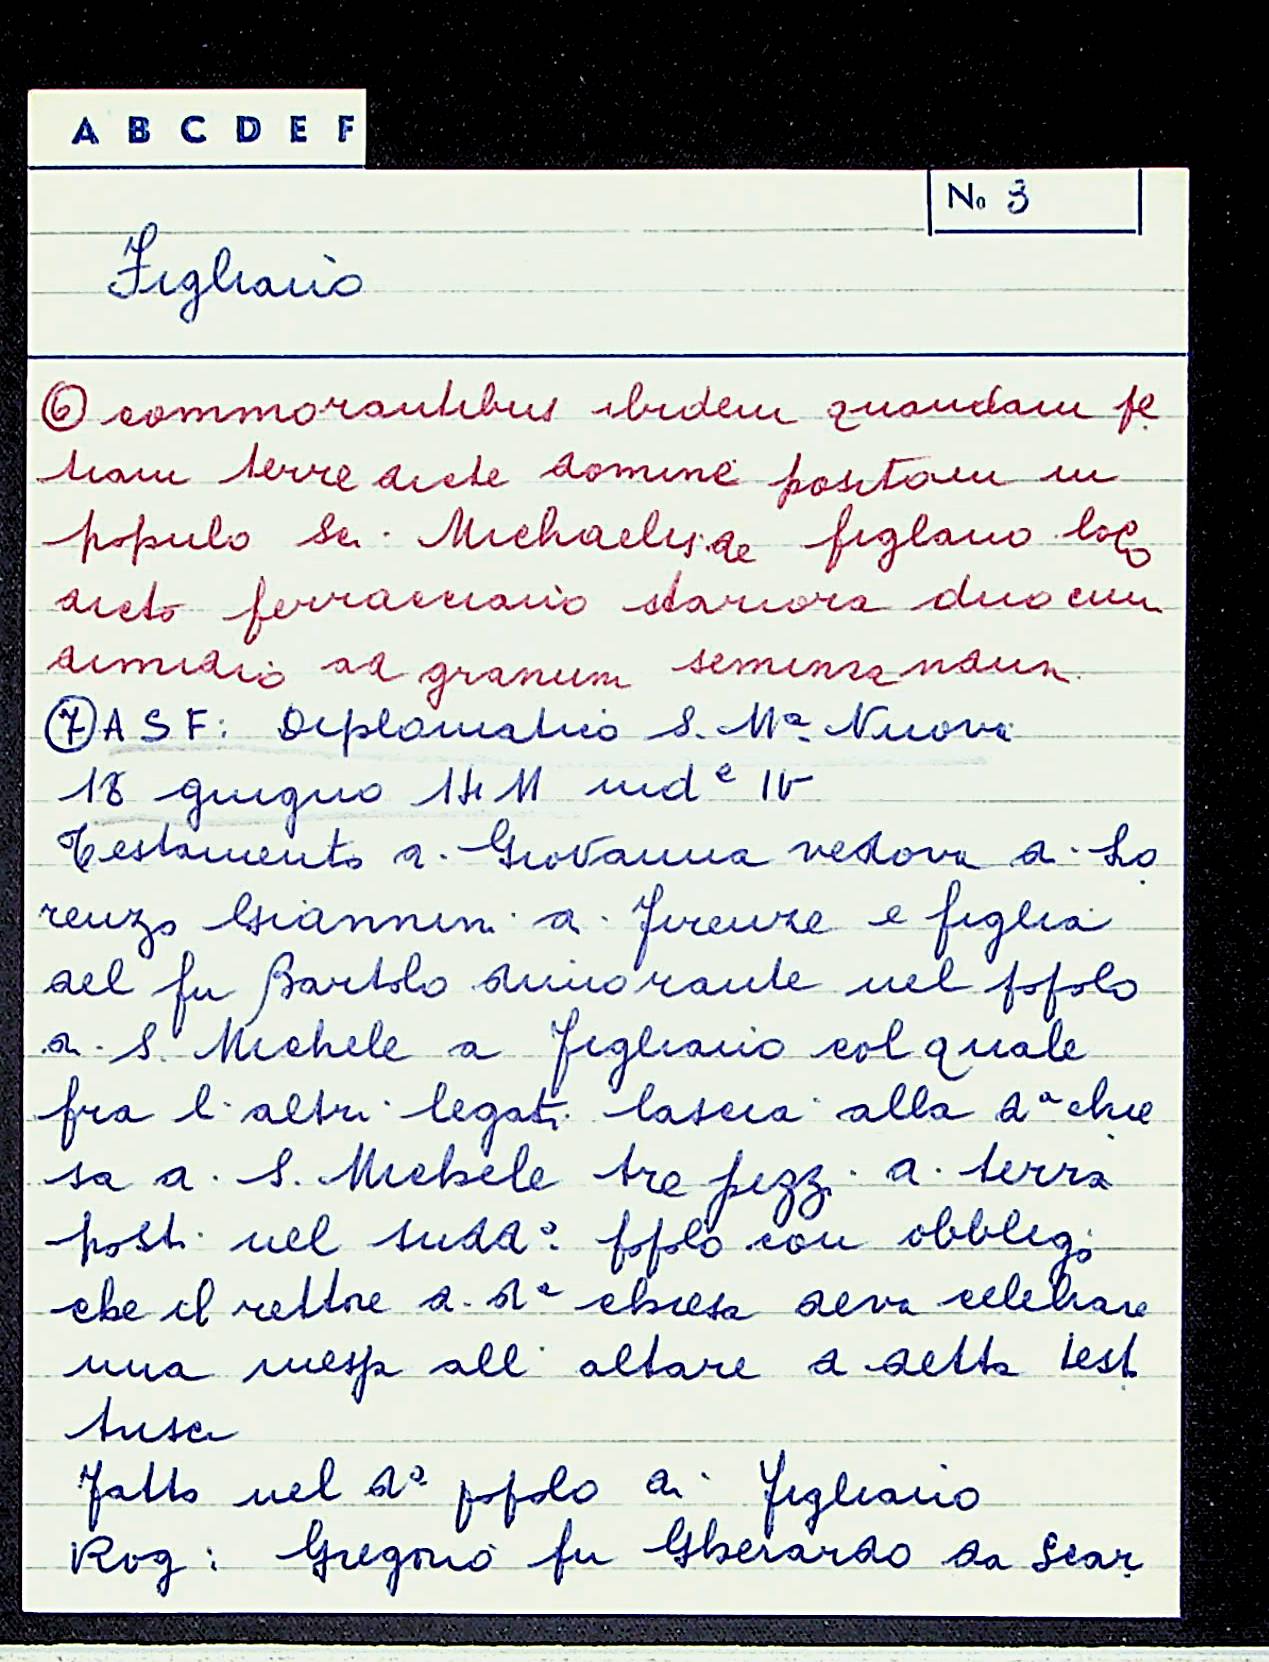 A B C D E F
No 3
Figliano
⑥ commorantibus ibidem quandam pe
tiam terre dicte domine positam in
populo Sci. Michaelis de figlano loco
dicto ferracciano stariora duo cum
dimidio ad granum seminandum
⑦ A S F: Diplomatico S. Mª. Nuova
18 giugno 1411 inde IV
Testamento di Giovanna vedova di Lo
renzo Giannini di Firenze e figlia
del fu Bartolo dimorante nel popolo
di S. Michele a Figliano col quale
fra l'altri legati lascia alla dª chie
sa di S. Michele tre pezzi di terra
posti nel suddº. popolo con obbligo
che il rettore di dª chiesa deva celebrare
una messa all'altare di detta test
Fatto nel dº popolo di Figliano
Rog: Gregorio fu Gherardo da Scar